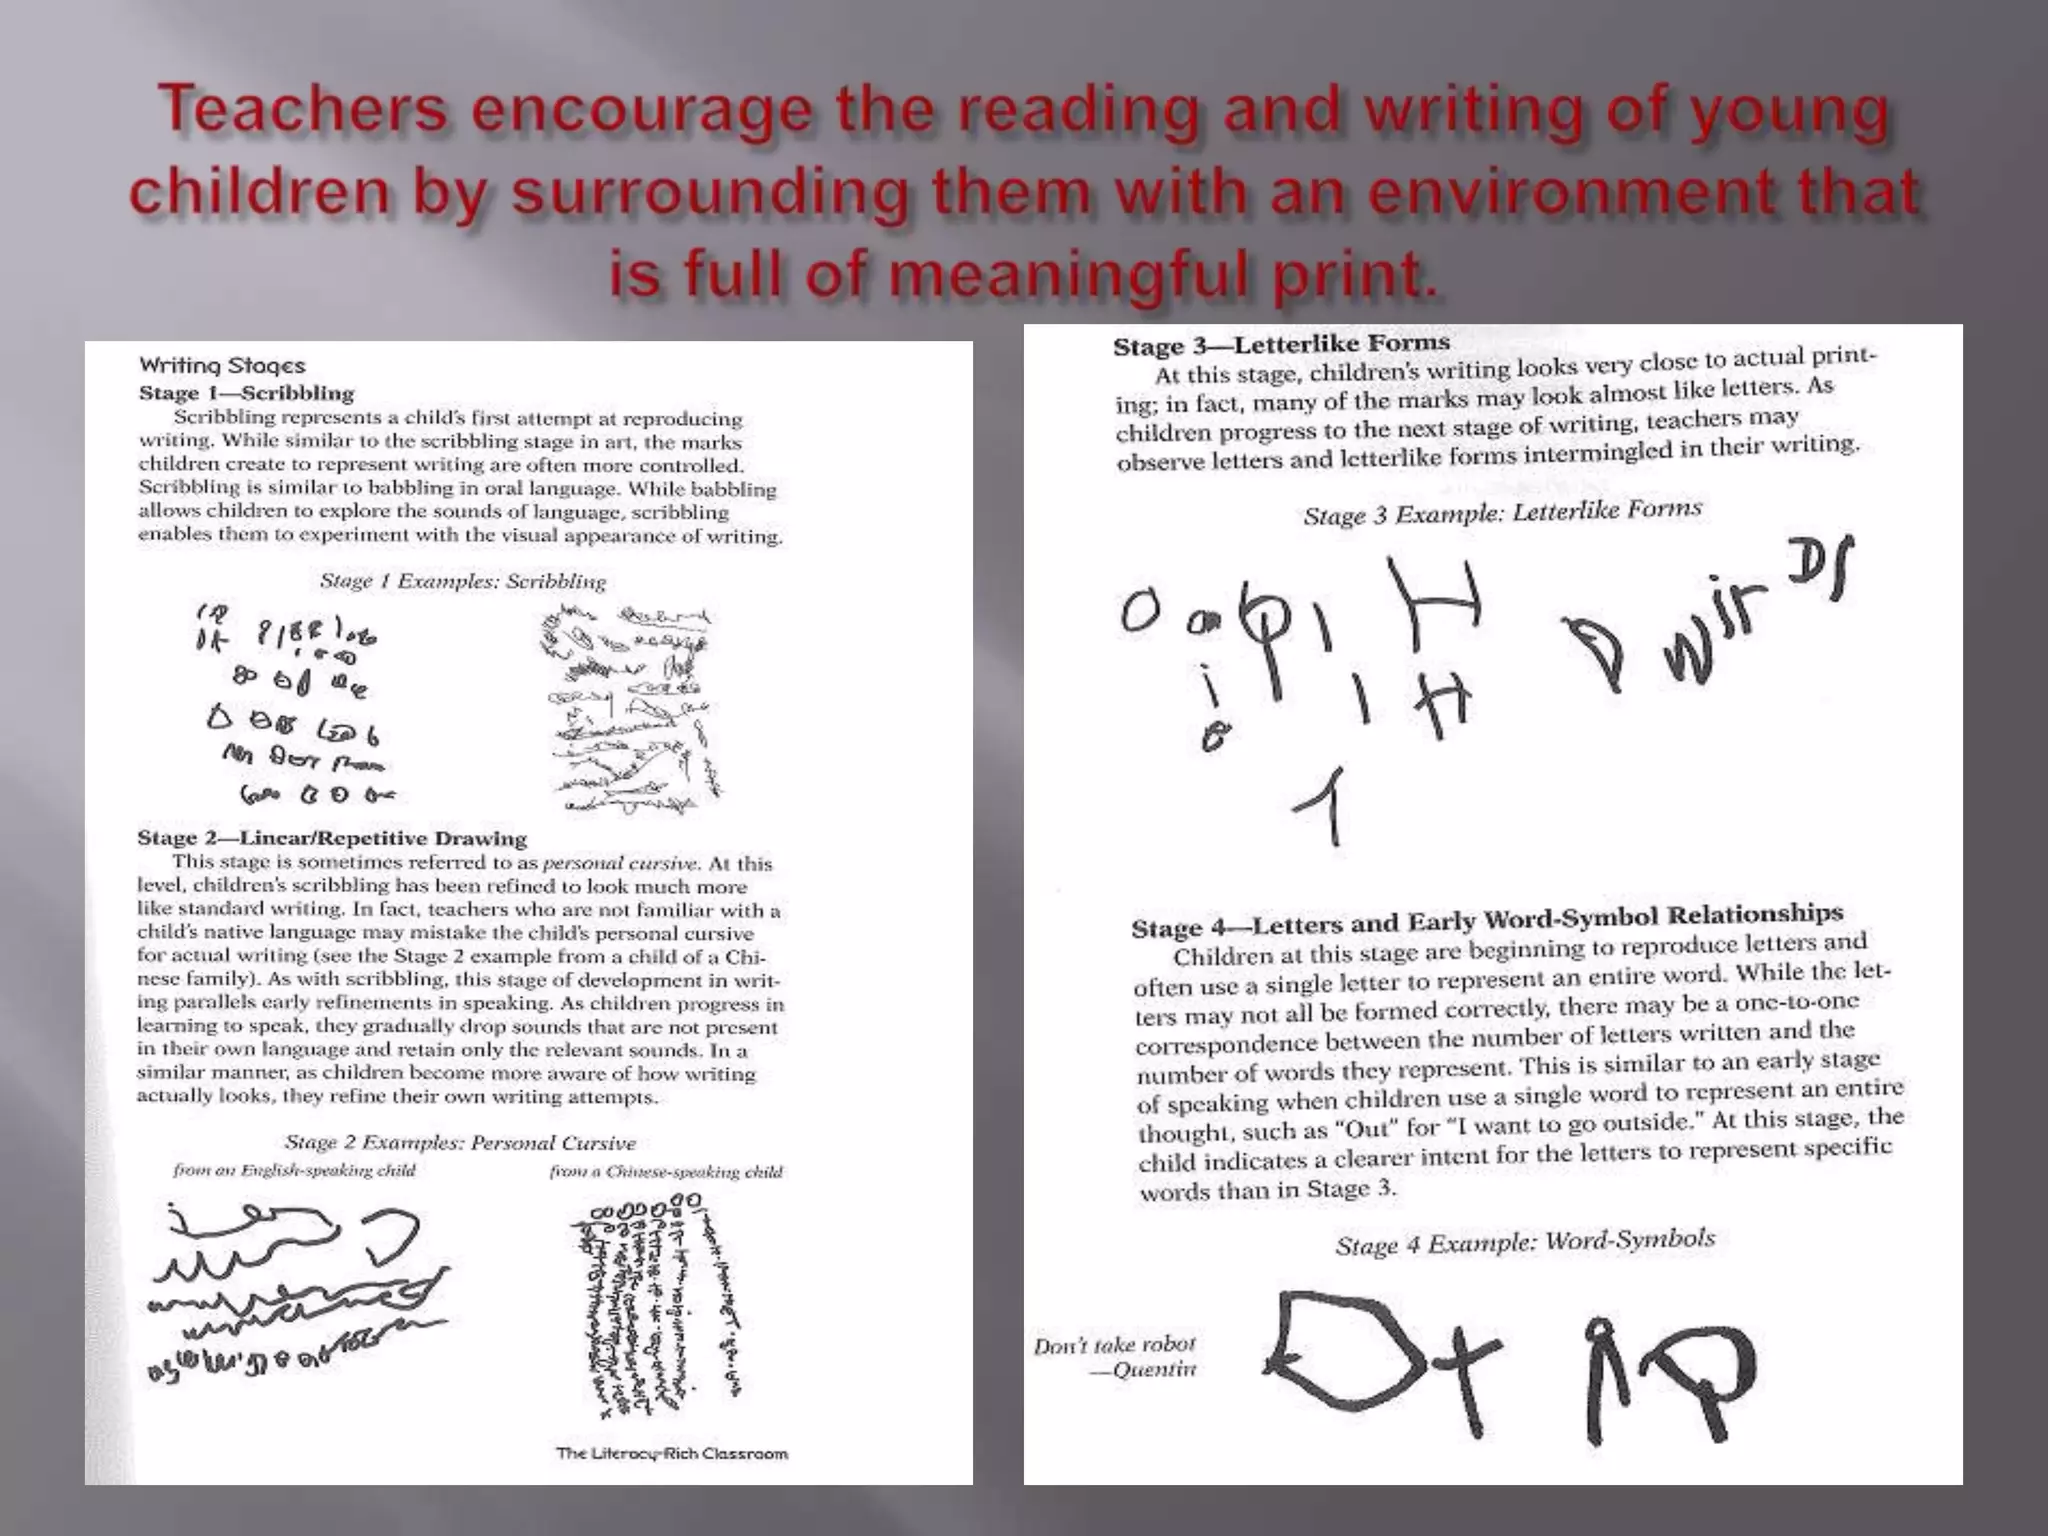 Teachers encourage the reading and writing of young
children by surrounding them with an environment that
is full of meaningful print.
Writing Stages
Stage 1—Scribbling
Scribbling represents a child's first attempt at reproducing
writing. While similar to the scribbling stage in art, the marks
children create to represent writing are often more controlled.
Scribbling is similar to babbling in oral language. While babbling
allows children to explore the sounds of language, scribbling
enables them to experiment with the visual appearance of writing.
Stage 1 Examples: Scribbling
Stage 2—Linear/Repetitive Drawing
This stage is sometimes referred to as personal cursive. At this
level, children's scribbling has been refined to look much more
like standard writing. In fact, teachers who are not familiar with a
child's native language may mistake the child's personal cursive
for actual writing (see the Stage 2 example from a child of a Chi-
nese family). As with scribbling, this stage of development in writ-
ing parallels early refinements in speaking. As children progress in
learning to speak, they gradually drop sounds that are not present
in their own language and retain only the relevant sounds. In a
similar manner, as children become more aware of how writing
actually looks, they refine their own writing attempts.
Stage 2 Examples: Personal Cursive
from an English-speaking child
from a Chinese-speaking child
The Literacy-Rich Classroom
Stage 3—Letterlike Forms
At this stage, children's writing looks very close to actual print-
ing; in fact, many of the marks may look almost like letters. As
children progress to the next stage of writing, teachers may
observe letters and letterlike forms intermingled in their writing.
Stage 3 Example: Letterlike Forms
Stage 4—Letters and Early Word-Symbol Relationships
Children at this stage are beginning to reproduce letters and
often use a single letter to represent an entire word. While the let-
ters may not all be formed correctly, there may be a one-to-one
correspondence between the number of letters written and the
number of words they represent. This is similar to an early stage
of speaking when children use a single word to represent an entire
thought, such as "Out" for "I want to go outside." At this stage, the
child indicates a clearer intent for the letters to represent specific
words than in Stage 3.
Stage 4 Example: Word-Symbols
Don't take robot
—Quentin